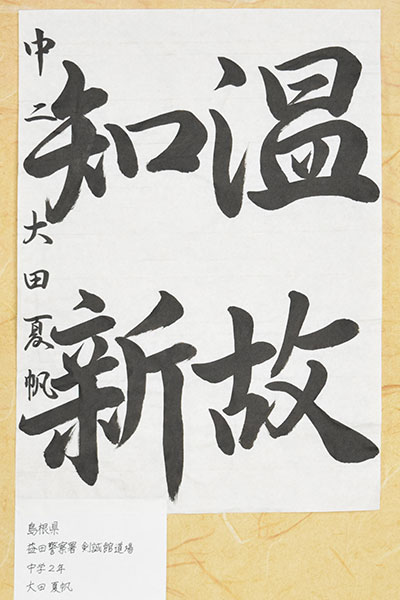 温故
知新
中二 大田夏帆
島根県
益田警察署 剣誠館道場
中学2年
大田 夏帆